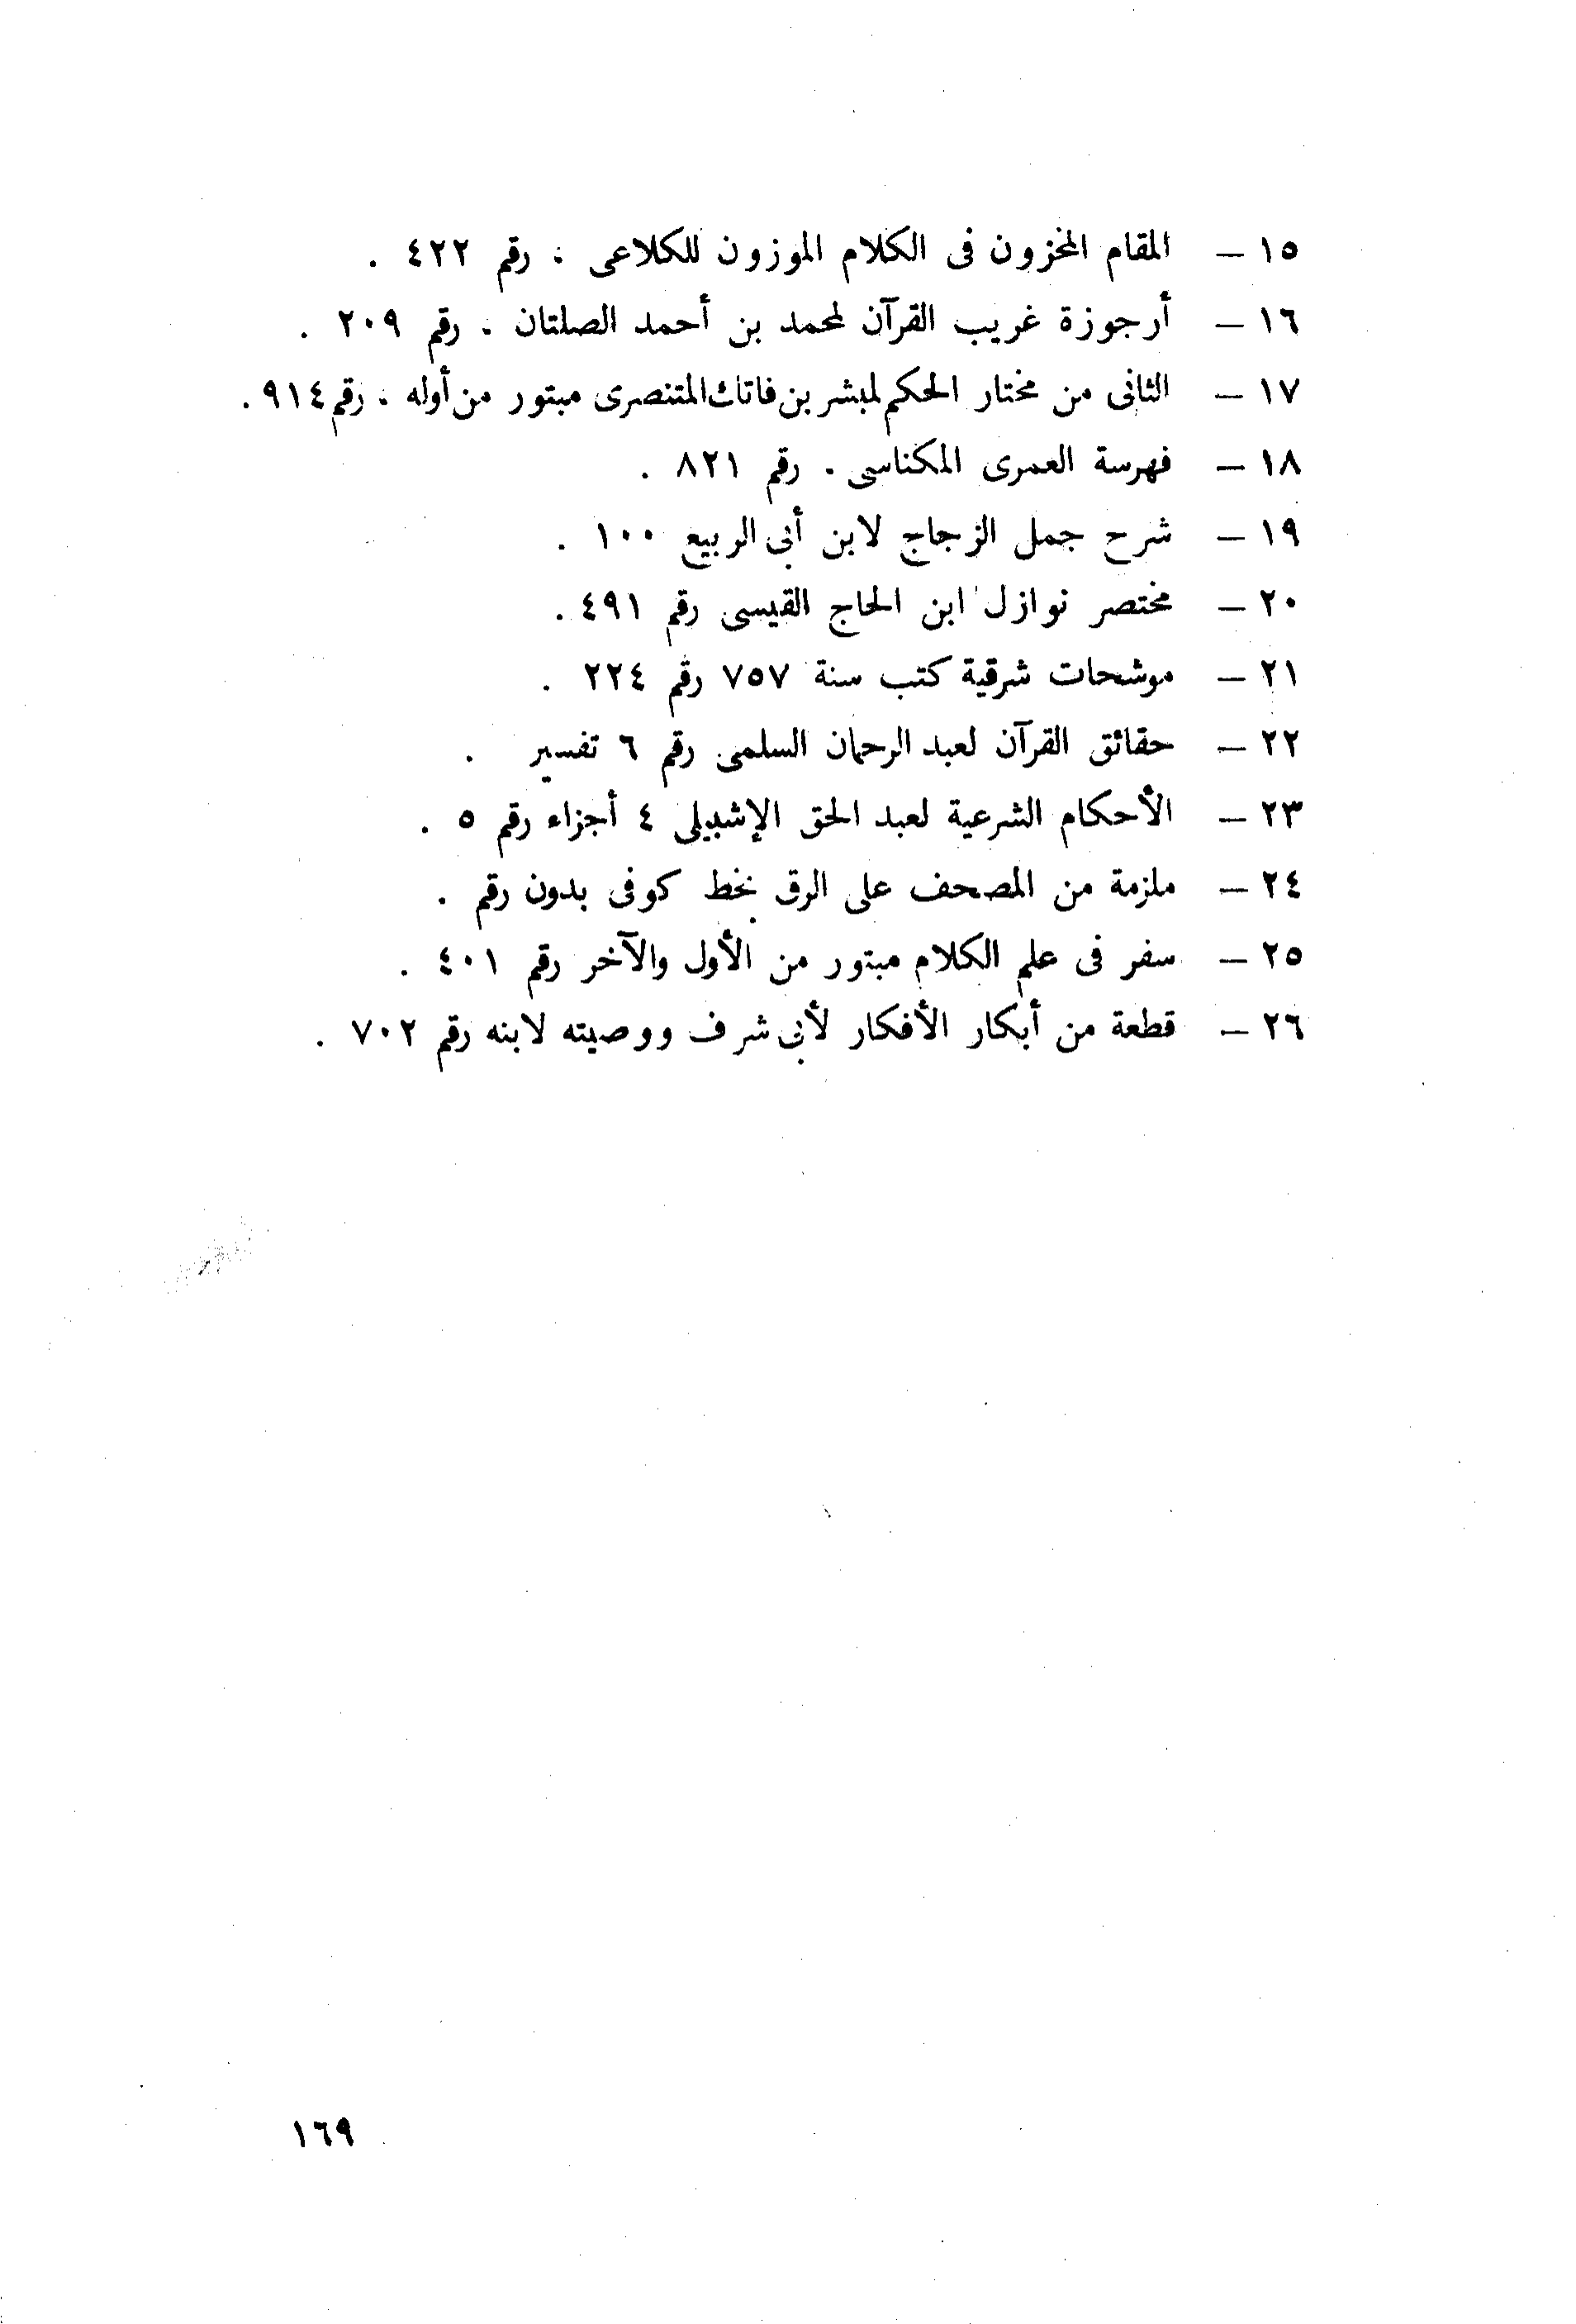 ١٥ – المقام المخزون فى الكلام الموزون للكلاعى ، رقم ٤٢٢ .
١٦ – أرجوزة غريب القرآن لمحمد بن أحمد الصلتان . رقم ٢٠٩ .
١٧ – الثانى من مختار الحكم لمبشر بن فاتك المتنصرى مبتور من أوله . رقم ٩١٤ .
١٨ – فهرسة العمرى المكناسى . رقم ٨٢١ .
١٩ – شرح جمل الزجاج لابن أبى الربيع ١٠٠ .
٢٠ – مختصر نوازل ابن الحاج القيسى رقم ٤٩١ .
٢١ – موشحات شرقية كتب سنة ٧٥٧ رقم ٢٢٤ .
٢٢ – حقائق القرآن لعبد الرحمان السلمى رقم ٦ تفسير .
٢٣ – الأحكام الشرعية لعبد الحق الإشبيلى ٤ أجزاء رقم ٥ .
٢٤ – ملزمة من المصحف على الرق بخط كوفى بدون رقم .
٢٥ – سفر فى علم الكلام مبتور من الأول والآخر رقم ٤٠١ .
٢٦ – قطعة من أبكار الأفكار لأبى شرف ووصيته لابنه رقم ٧٠٢ .
١٦٩